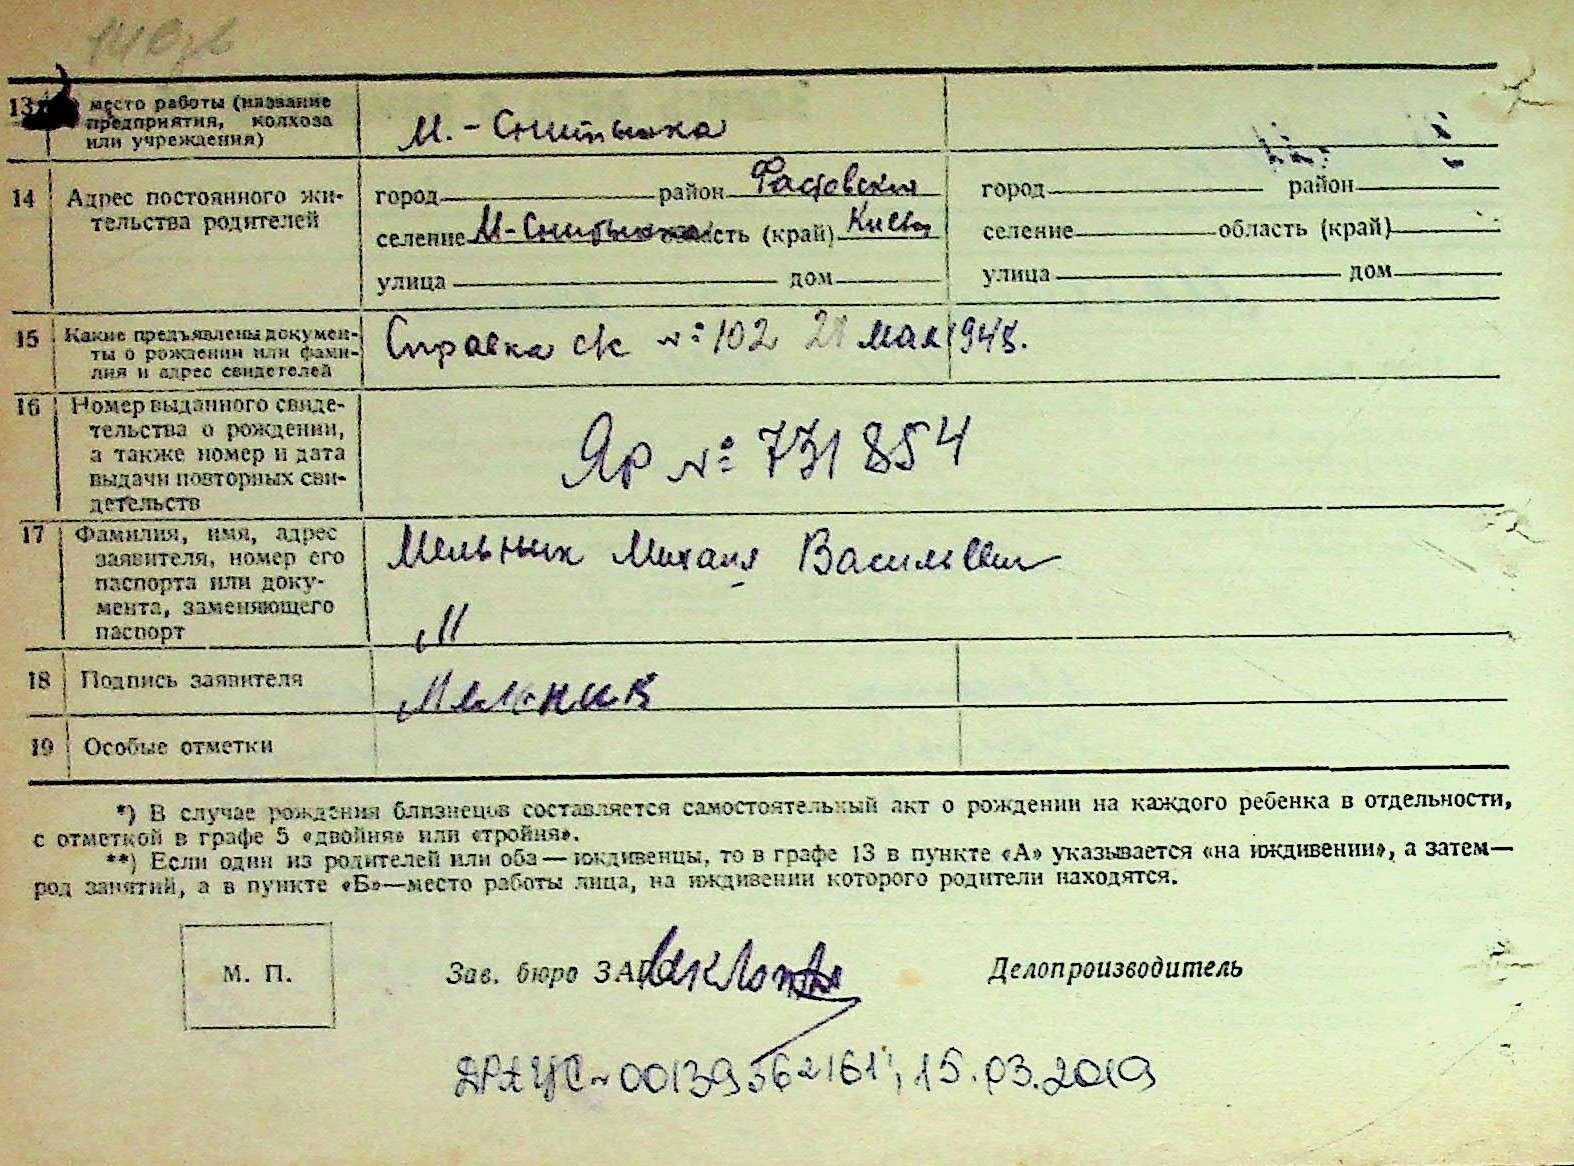 13
место работы (название
предприятия, колхоза
или учреждения)
М.-Снитынка
14 Адрес постоянного жи-
тельства родителей
город район Фастовский город район
селение М-Снитынка область (край) Киевск селение область (край)
улица дом улица дом
15 Какие предъявлены докумен-
ты о рождении или фами-
лия и адрес свидетелей
Справка с/с №102 21 мая 1948.
16 Номер выданного свиде-
тельства о рождении,
а также номер и дата
выдачи повторных сви-
детельств
Яр № 731854
17 Фамилия, имя, адрес
заявителя, номер его
паспорта или доку-
мента, заменяющего
паспорт
Мельник Михаил Васильевич
"
18 Подпись заявителя
Мельник
19 Особые отметки
*) В случае рождения близнецов составляется самостоятельный акт о рождении на каждого ребенка в отдельности,
с отметкой в графе 5 «двойня» или «тройня».
**) Если один из родителей или оба—иждивенцы, то в графе 13 в пункте «А» указывается «на иждивении», а затем—
род занятий, а в пункте «Б»—место работы лица, на иждивении которого родители находятся.
М. П. Зав. бюро ЗАГС Делопроизводитель
ДРАЦС-00139562161, 15.03.2019